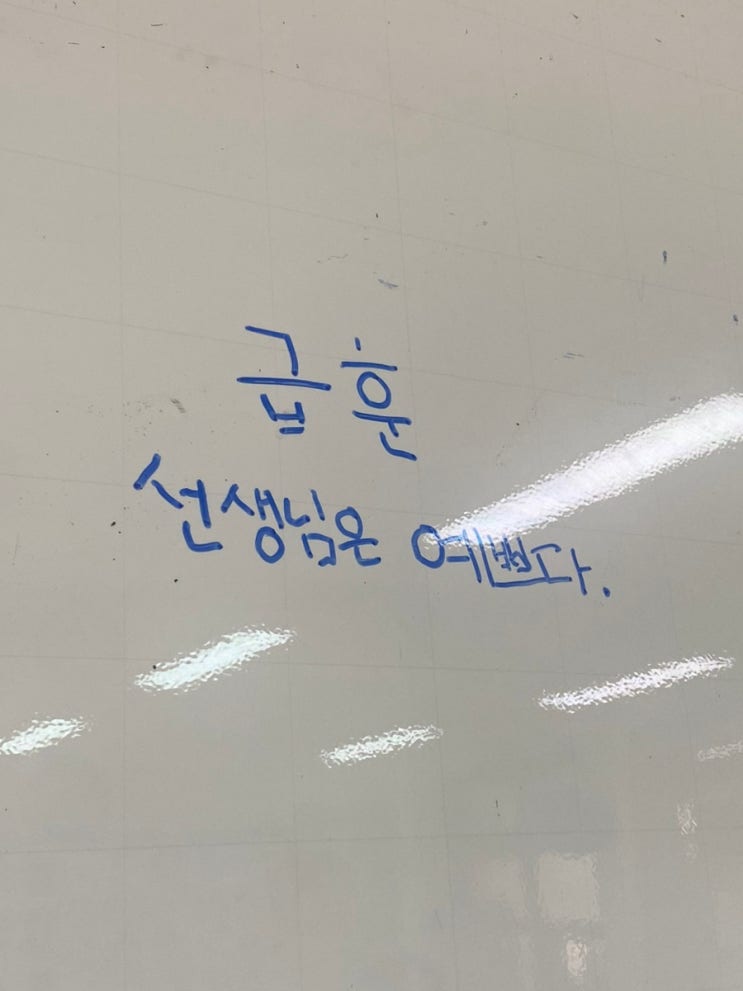 급훈
선생님은 예쁘다.